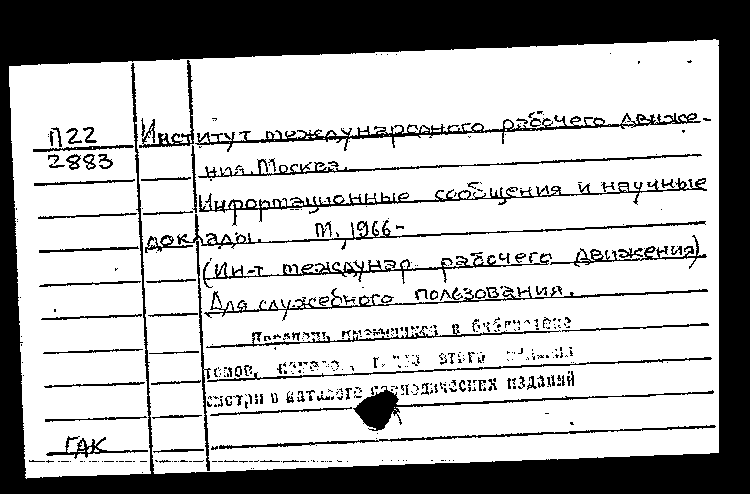 П22 Институт международного рабочего движе-
2883 ния. Москва.
Информационные сообщения и научные
доклады. М., 1966-
(Ин-т междунар. рабочего движения)
Для служебного пользования.
Перечень имеющихся в библиотеке
томов, номеро, этого
смотри в каталоге периодических изданий
ГАК